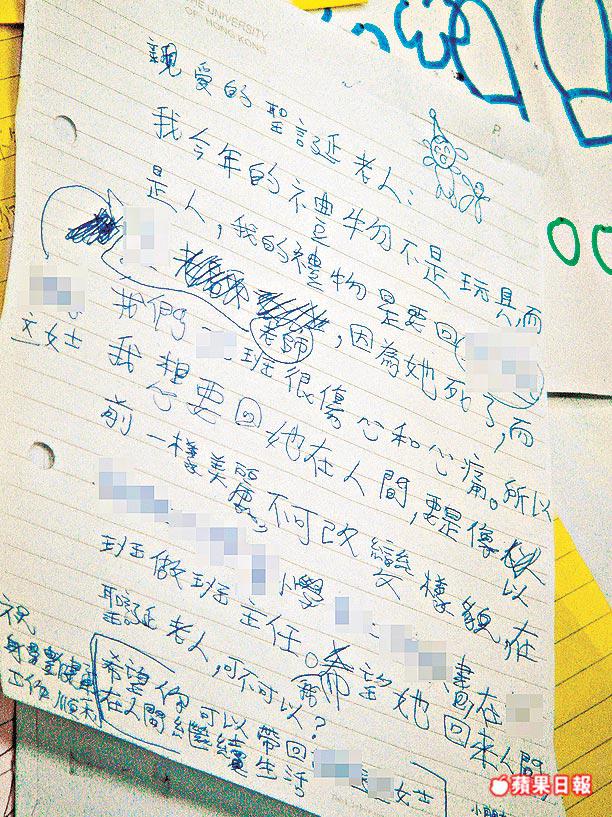 THE UNIVERSITY
OF HONG KONG
親愛的聖誕老人：
我今年的禮物不是玩具而
是人，我的禮物是要回
老師，因為她死了，而
我們 班很傷心和心痛。所以
文女士
我想要回她在人間，要是像以
前一樣美麗，不可改變樣貌，在
小學 書在
班做班主任。希望她回來人間
聖誕老人，可不可以？
祝
身體健康
工作順利
希望你可以帶回 女士
在人間繼續生活
蘋果日報